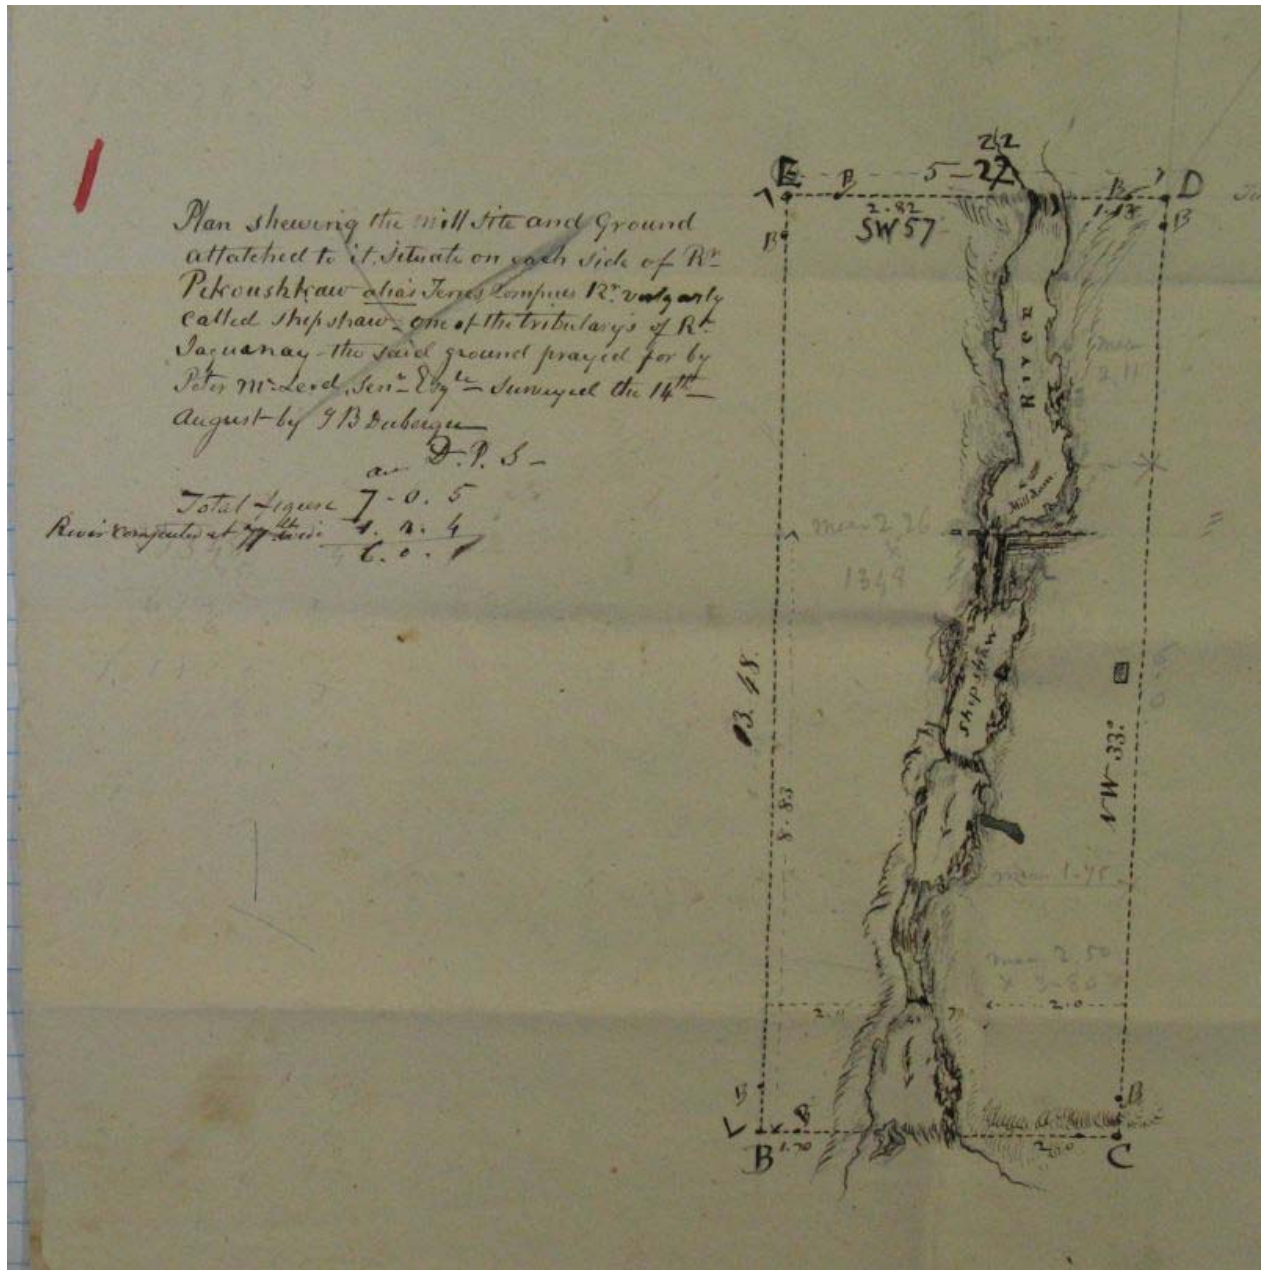 Plan shewing the Mill Site and Ground
attatched to it. Situate on each side of Rr
Pekoushkaw alias Terres Rompues Rr. vulgarly
called Shipshaw - one of the tributary's of Rr
Saguanay - the said ground prayed for by
Peter McLeod Senr. Esqre - Surveyed the 14th
August by J B Duberger
D. P. S -
Total figure 7 - 0. 5
River computed at
6. 0. 1
22
E B 5 - 22 B D
2.82
SW 57
B B
River
mean
2 11
Mill Dam
mean 2.26
1349
Shipshaw
13.48.
8.83
NW 33°
mean 1.75
mean 2.50
2.0
B B
B 1.70 2.0 C